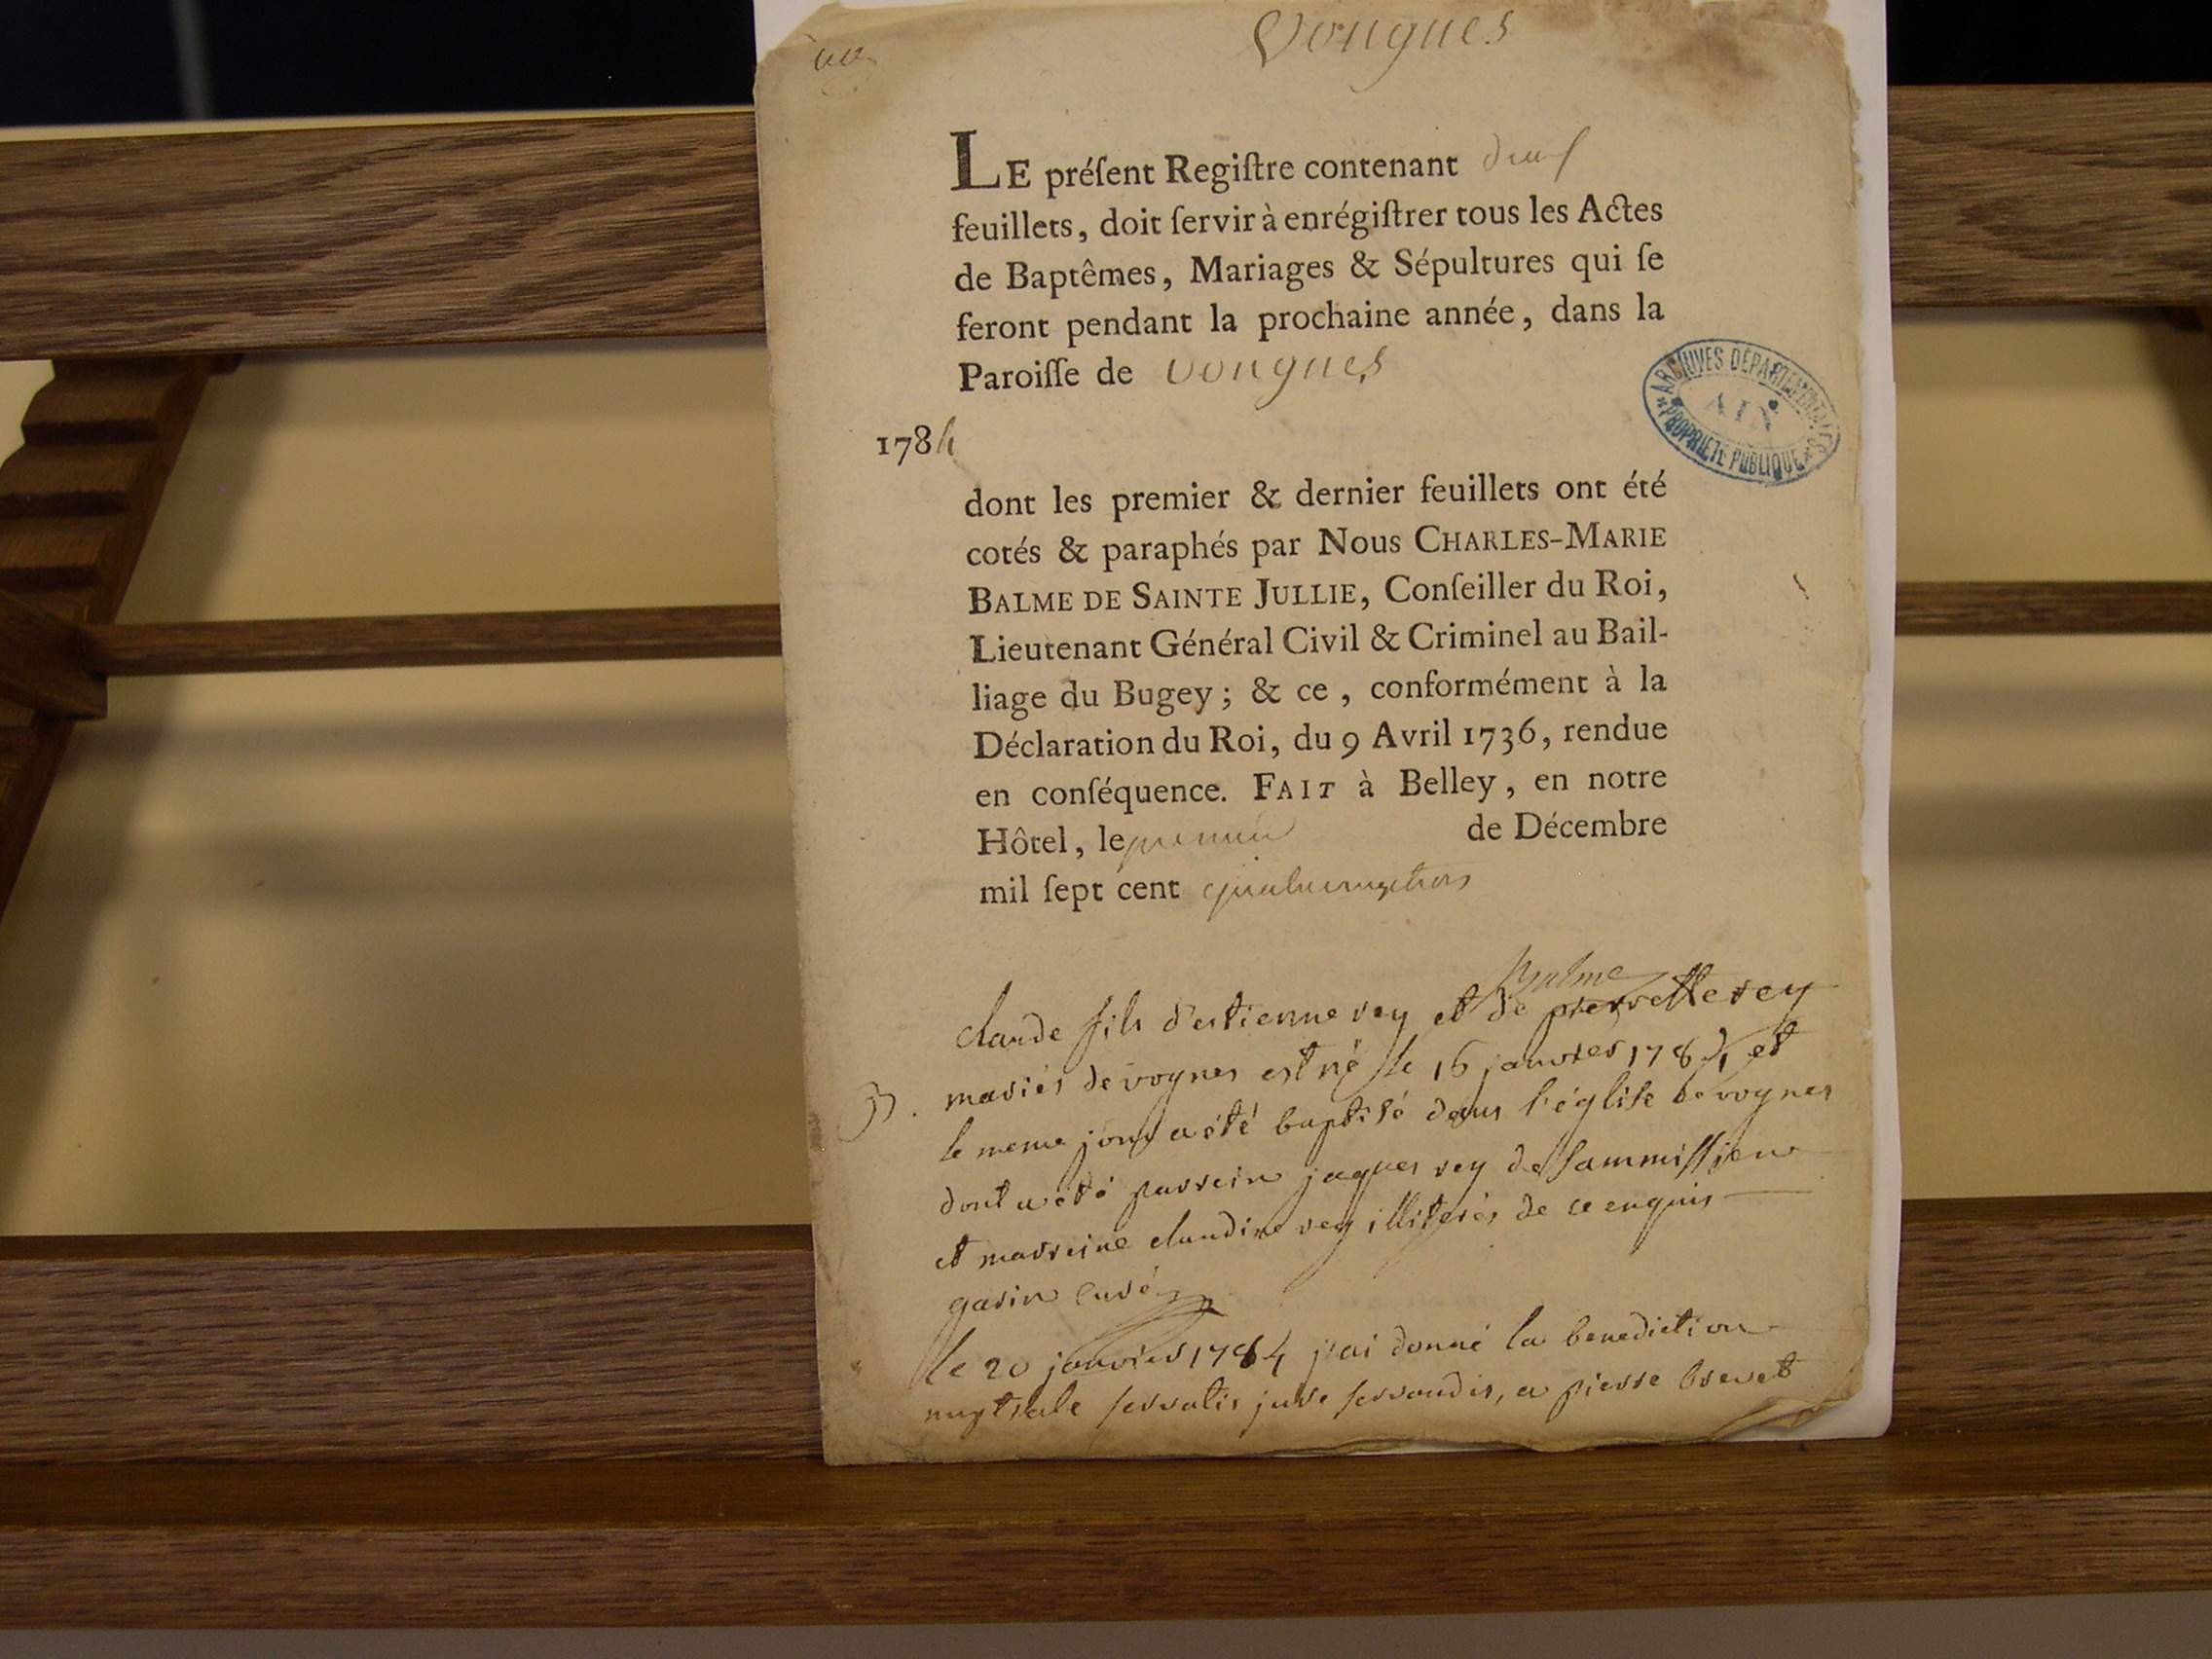 Vongnes
LE préſent Regiſtre contenant deux
feuillets, doit ſervir à enrégiſtrer tous les Actes
de Baptêmes, Mariages & Sépultures qui ſe
feront pendant la prochaine année, dans la
Paroiſſe de Vongnes
ARCHIVES DÉPARTEMENTALES
AIN
PROPRIÉTÉ PUBLIQUE
1784
dont les premier & dernier feuillets ont été
cotés & paraphés par Nous CHARLES-MARIE
BALME DE SAINTE JULLIE, Conſeiller du Roi,
Lieutenant Général Civil & Criminel au Bail-
liage du Bugey ; & ce , conformément à la
Déclaration du Roi, du 9 Avril 1736, rendue
en conſéquence. FAIT à Belley, en notre
Hôtel, le premier de Décembre
mil ſept cent quatrevingttrois
Balme
claude fils d'estienne rey et de pierrette rey
mariés de vognes est né le 16 janvier 1784 et
B.
le meme jour a été baptisé dans l'église de vognes
dont a été parrein jaques rey de sammissieu
et marreine claudine rey illiterés de ce enquis
garin curé
le 20 janvier 1784 j'ai donné la benediction
nuptiale servatis jure servandis, a pierre brevet